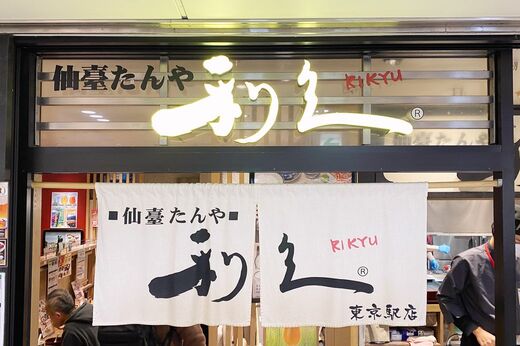 仙臺たんや
利久
RIKYU
®
■仙臺たんや■
利久
RIKYU
®
東京駅店